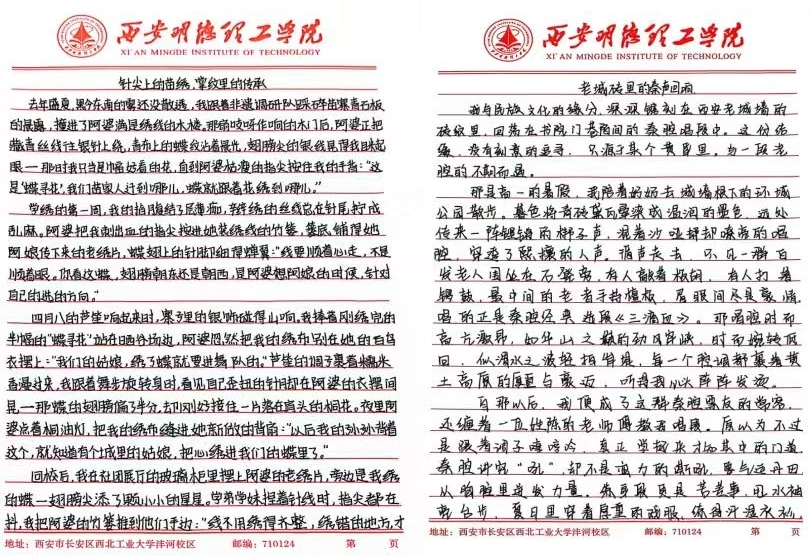 西安明德理工学院
XI'AN MINGDE INSTITUTE OF TECHNOLOGY
针尖上的苗绣,掌纹里的传承
去年盛夏,黔东南的雾还没散透,我跟着非遗调研队踩碎苗寨青石板
的晨露,撞进了阿婆满是绣线的木楼。那扇吱呀作响的木门后,阿婆正把
靛青丝线往银针上绕,青布上的蝶纹沾着晨光,翅膀尖的银线晃得我眯起
眼—那时我只当是幅好看的花,直到阿婆枯瘦的指尖按住我的手背:“这
是‘蝶寻花’,我们苗家人迁到哪儿,蝶就跟着花绣到哪儿。”
学绣的第一周,我的指腹结了层薄痂,绣绷的丝线总在针尾拧成
乱麻。阿婆把我刺出血的指尖按进她装绣线的竹篓,篓底铺得她
阿娘传下来的老绣片,蝶翅上的针脚却细得像蝉翼:“线要顺着心走,不是
顺着眼。你看这蝶,翅膀朝东还是朝西,是阿婆想阿娘的时候,针对
自己的选的方向。”
四月八的芦笙响起来时,寨子里的银饰碰得山响。我捧着刚绣完的
半幅的“蝶寻花”站在晒谷场边,阿婆忽然把我的绣布别在她的百鸟
衣摆上:“我们的姑娘,绣了蝶就要进舞队的。”芦笙的调子裹着糯米
香漫过来,我跟着舞步旋转身时,看见自己歪扭的针脚在阿婆的衣摆间
晃—那蝶的翅膀偏了半分,却刚好接住一片落在肩头的桐花。夜里阿
婆点着桐油灯,把我的绣布缝进她新做的背扇:“以后我的孙孙背着
这个,就知道有个城里的姑娘,把心绣进我们的蝶里了。”
回校后,我在社团展厅的玻璃柜里摆上阿婆的老绣片,旁边是我绣
的蝶—翅膀尖添了颗小小的星星。学弟学妹捏着针线时,指尖都在
抖,我把阿婆的竹篓推到他们手边:“线不用绣得齐整,绣错的地方,才
地址:西安市长安区西北工业大学沣河校区 邮编:710124 第 页
西安明德理工学院
XI'AN MINGDE INSTITUTE OF TECHNOLOGY
老城砖里的秦声回响
我与民族文化的缘分,深深镌刻在西安老城墙的
砖纹里,回荡在书院门巷陌间的秦腔唱段中。这份情
缘,没有刻意的追寻,只源于某个黄昏里,与一段老
腔的不期而遇。
那是高一的暑假,我陪着奶奶去城墙根下的环城
公园散步。暮色将青砖黛瓦晕染成温润的墨色,远处
传来一阵铿锵的梆子声,混着沙哑却嘹亮的唱
腔,穿透了熙攘的人声。循声走去,只见一群白
发老人围坐在石凳旁,有人敲着梆胡,有人打着
锣鼓,最中间的老者手持檀板,眉眼间尽是豪情,
唱的正是秦腔经典选段《三滴血》。那唱腔时而
高亢激昂,如华山之巅的劲风呼啸,时而婉转低
回,似渭水之波轻拍岸堤,每一个腔调都裹着黄
土高原的厚重与豪迈,听得我心头阵阵发烫。
自那以后,我便成了这群秦腔票友的常客,
还缠着一位姓陈的老师傅教我唱戏。原以为不过
是跟着调子哼哼唱,真正学起来才知其中的门道。
秦腔讲究“吼”,却不是蛮力的嘶吼,要气运丹田
从胸腔里迸发力量。练身段更是苦差事,甩水袖
走台步,夏日里穿着厚重的戏服,练得汗湿衣衫,
地址:西安市长安区西北工业大学沣河校区 邮编:710124 第 页